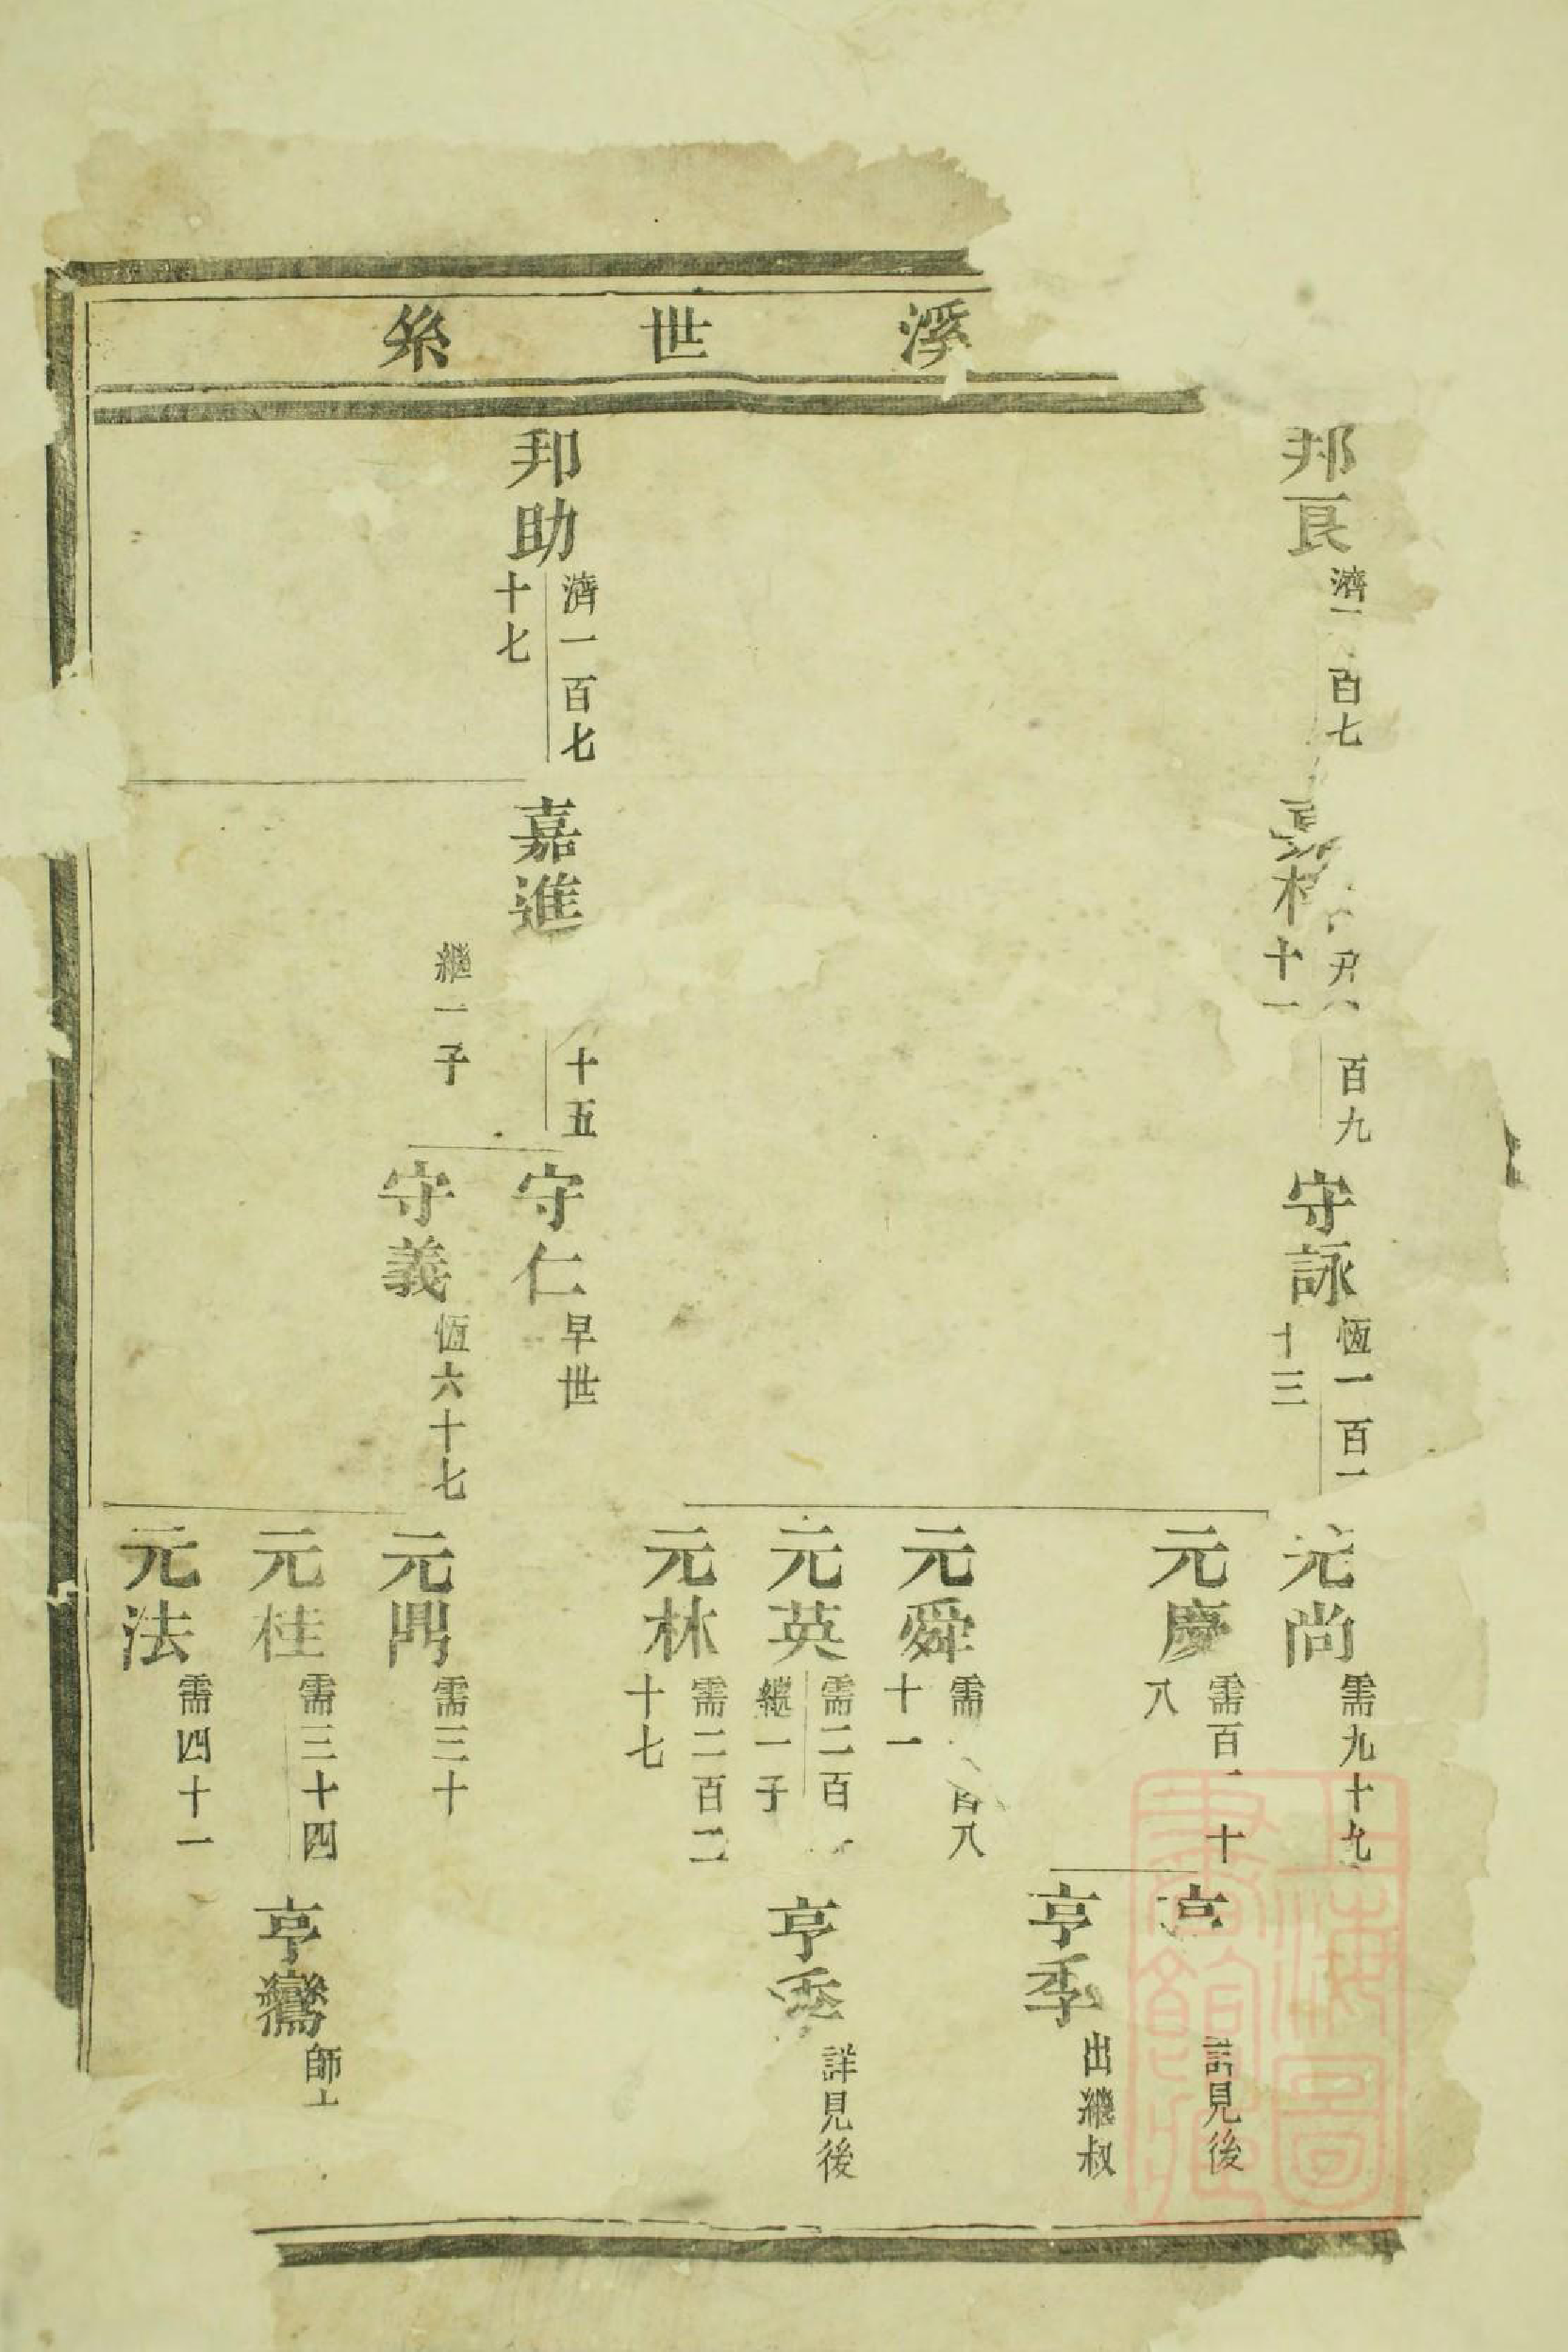 溪世系
邦良
濟一百七
十一
百九
守詠
恆一百一
十三
元尚
需九十九
元慶
需百一十
八
亨
詳見後
亨季
出繼叔
元舜
需百八
十一
元英
需二百
繼一子
亨季
詳見後
元林
需二百二
十七
邦助
濟一百七
十七
嘉進
十五
繼一子
守仁
早世
守義
恆六十七
元鼎
需三十
元桂
需三十四
亨鸞
師
元法
需四十一
上海圖
書館藏